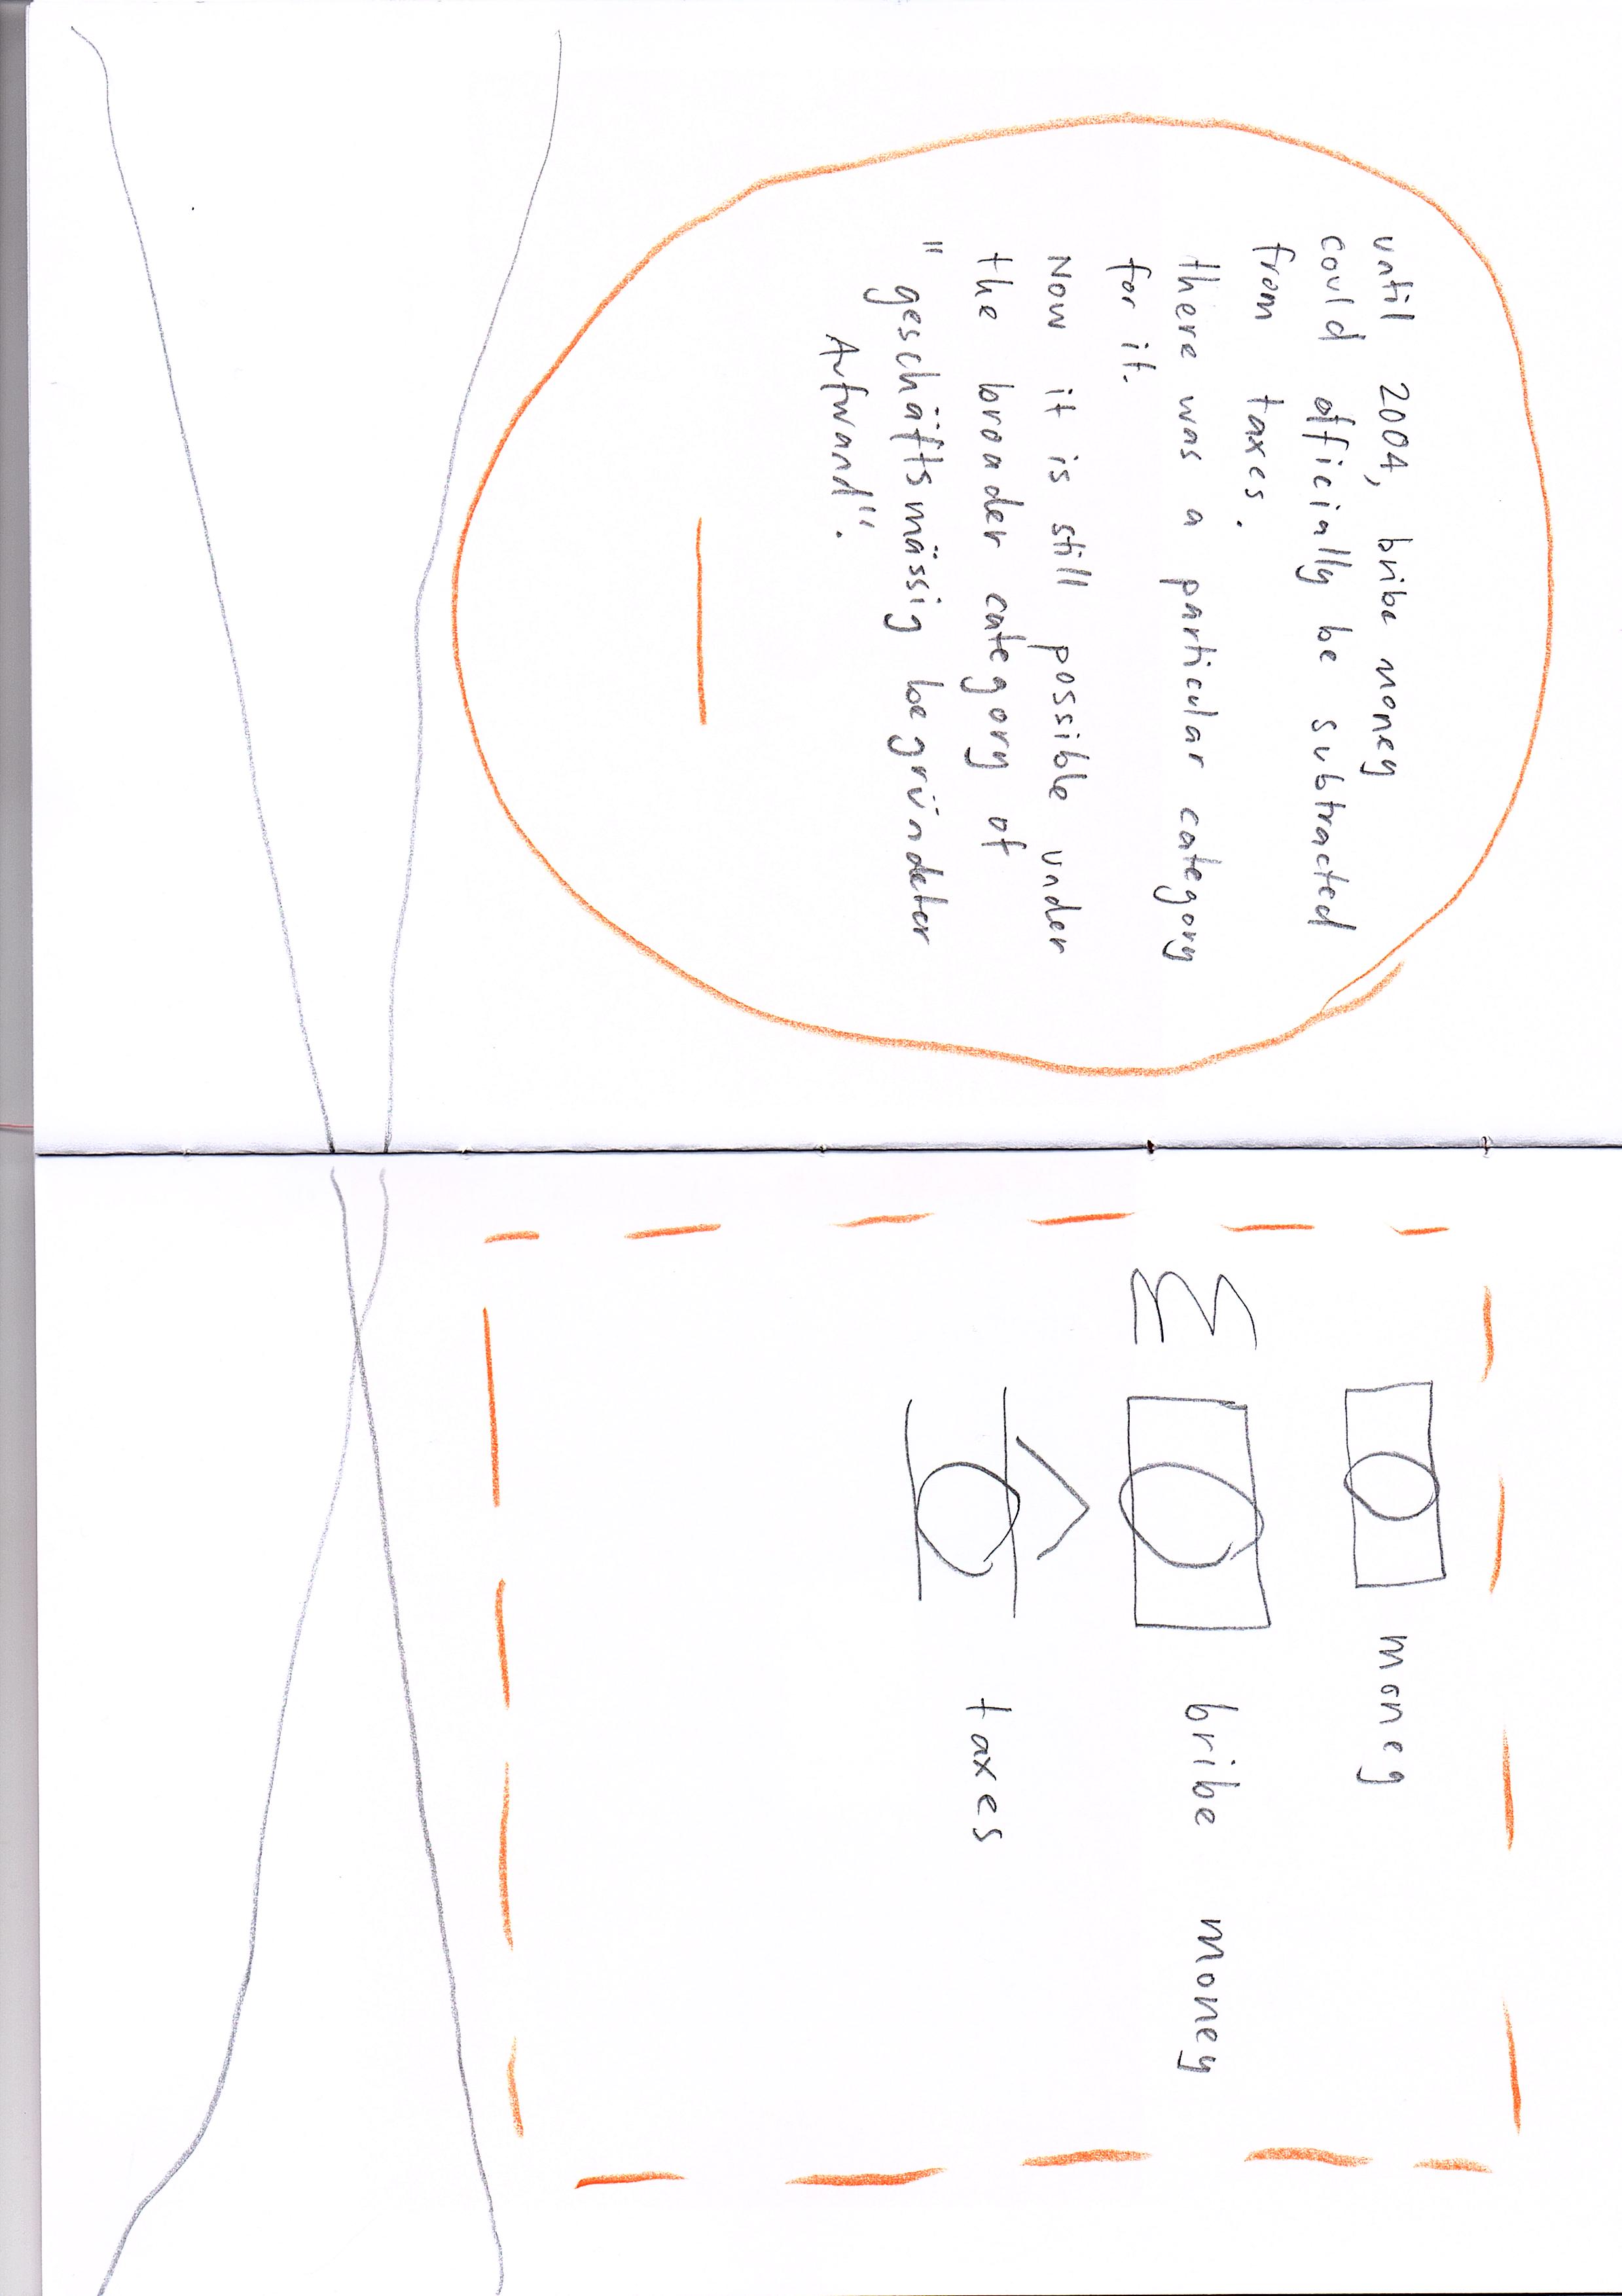 until 2004, bribe money
could officially be subtracted
from taxes.
there was a particular category
for it.
Now it is still possible under
the broader category of
" geschäftsmässig begründeter
Aufwand".
money
bribe money
taxes